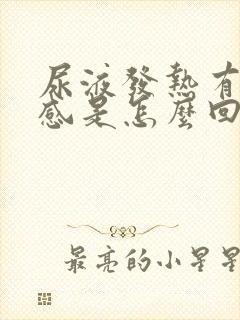 尿液發熱有
感是怎麼回
最亮的小星星